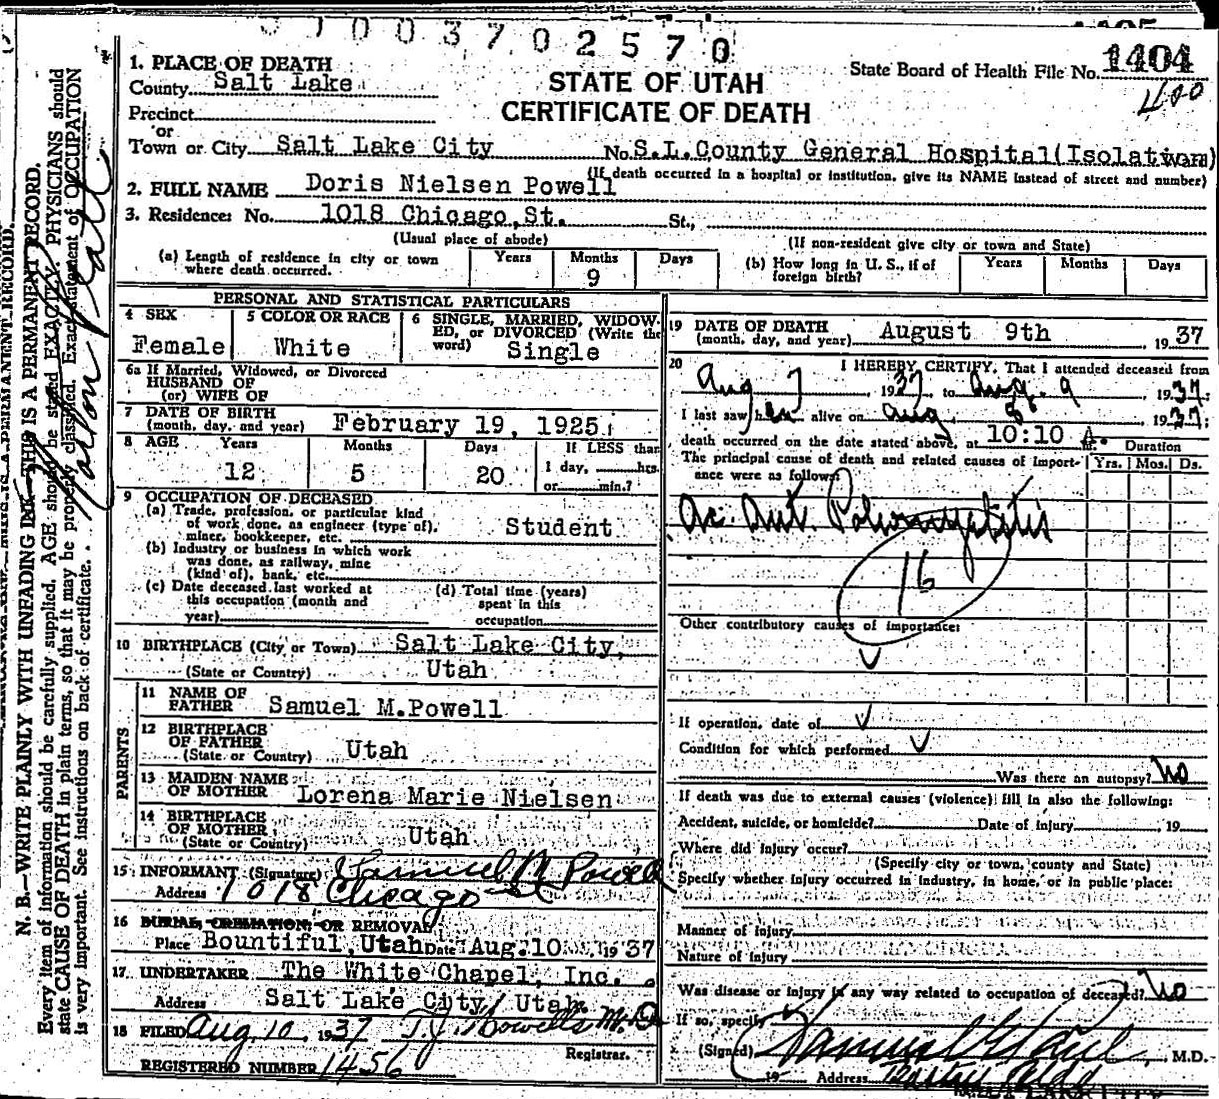 3 7 0 2 5 7 0
1. PLACE OF DEATH
County Salt Lake
STATE OF UTAH
CERTIFICATE OF DEATH
State Board of Health File No. 1404
400
Precinct
or
Town or City Salt Lake City No. S.L.County General Hospital(Isolation
(If death occurred in a hospital or institution, give its NAME instead of street and number)
2. FULL NAME Doris Nielsen Powell
3. Residence: No. 1018 Chicago,St. St.,
(Usual place of abode) (If non-resident give city or town and State)
(a) Length of residence in city or town where death occurred. Years Months 9 Days
(b) How long in U. S., if of foreign birth? Years Months Days
PERSONAL AND STATISTICAL PARTICULARS
4 SEX Female
5 COLOR OR RACE White
6 SINGLE, MARRIED, WIDOWED, or DIVORCED (Write the word) Single
6a If Married, Widowed, or Divorced
HUSBAND OF
(or) WIFE OF
7 DATE OF BIRTH
(month, day, and year) February 19, 1925
8 AGE Years 12 Months 5 Days 20 If LESS than 1 day, hrs. or min.?
9 OCCUPATION OF DECEASED
(a) Trade, profession, or particular kind of work done, as engineer (type of), miner, bookkeeper, etc. Student
(b) Industry or business in which work was done, as railway, mine (kind of), bank, etc.
(c) Date deceased last worked at this occupation (month and year)
(d) Total time (years) spent in this occupation
10 BIRTHPLACE (City or Town) Salt Lake City,
(State or Country) Utah
PARENTS
11 NAME OF FATHER Samuel M.Powell
12 BIRTHPLACE OF FATHER
(State or Country) Utah
13 MAIDEN NAME OF MOTHER Lorena Marie Nielsen
14 BIRTHPLACE OF MOTHER
(State or Country) Utah
15 INFORMANT (Signature) Samuel M Powell
Address 1018 Chicago St
16 BURIAL, CREMATION, OR REMOVAL
Place Bountiful, Utah Date Aug. 10 1937
17 UNDERTAKER The White Chapel, Inc.
Address Salt Lake City, Utah.
18 FILED Aug. 10, 1937 T.J. Howells M.D.
Registrar.
REGISTERED NUMBER 1456
19 DATE OF DEATH
(month, day, and year) August 9th , 1937
20 I HEREBY CERTIFY, That I attended deceased from
Aug 7, 1937, to Aug. 9 1937.
I last saw her alive on Aug 8 1937;
death occurred on the date stated above, at 10:10 A. m.
Duration
The principal cause of death and related causes of importance were as follows: Yrs. Mos. Ds.
Ac. Ant. Poliomyelitis
16
Other contributory causes of importance:
If operation, date of
Condition for which performed
Was there an autopsy? No
If death was due to external causes (violence) fill in also the following:
Accident, suicide, or homicide? Date of injury , 19
Where did injury occur?
(Specify city or town, county and State)
Specify whether injury occurred in industry, in home, or in public place:
Manner of Injury
Nature of injury
Was disease or injury in any way related to occupation of deceased? No
If so, specify
(Signed) , M.D.
19 Address
N. B.—WRITE PLAINLY WITH UNFADING INK—THIS IS A PERMANENT RECORD.
Every item of information should be carefully supplied. AGE should be stated EXACTLY. PHYSICIANS should
state CAUSE OF DEATH in plain terms, so that it may be properly classified. Exact statement of OCCUPATION
is very important. See instructions on back of certificate.